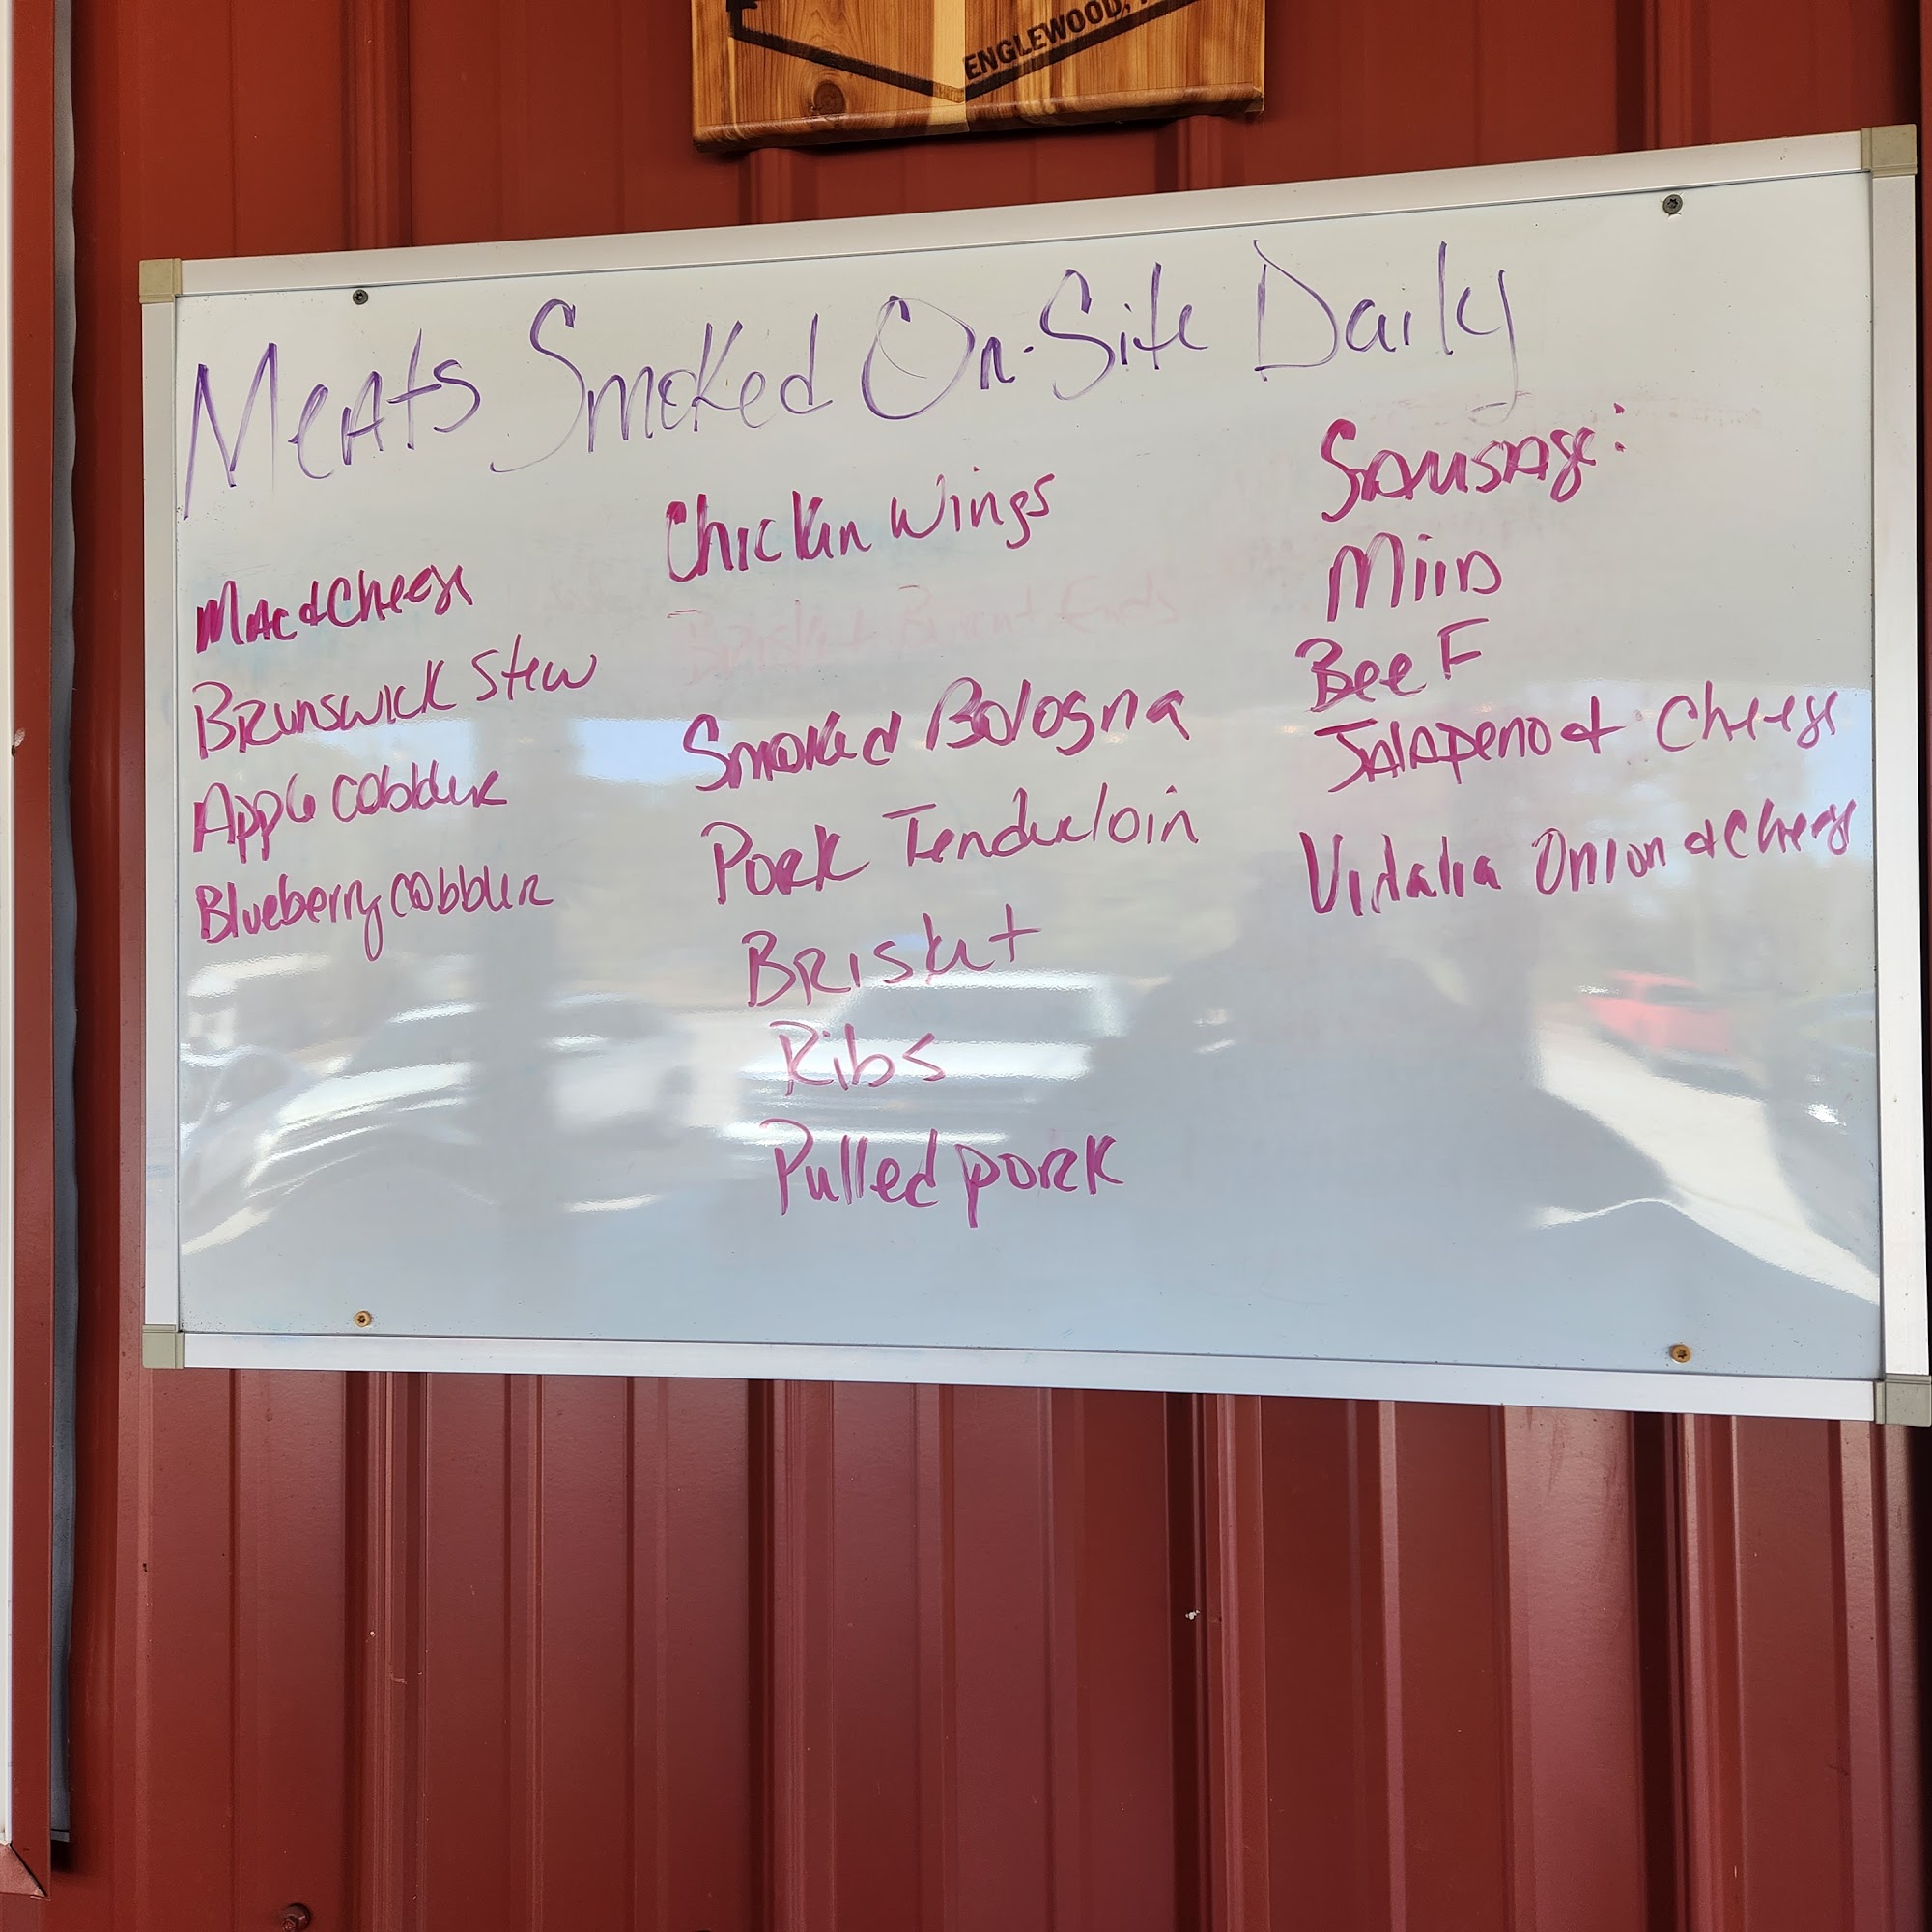 ENGLEWOOD,
Meats Smoked On-Site Daily
Mac & Cheese
Brunswick Stew
Apple cobbler
Blueberry cobbler
Chicken Wings
Brisket Burnt Ends
Smoked Bologna
Pork Tenderloin
Brisket
Ribs
Pulled pork
Sausage:
Mild
Beef
Jalapeno & Cheese
Vidalia Onion & Cheese